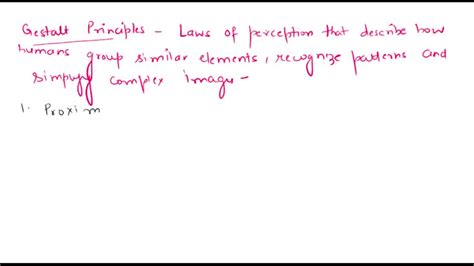 Gestalt Principles - Laws of perception that describe how
humans group similar elements, recognize patterns and
simplify complex image -
1. Proxim